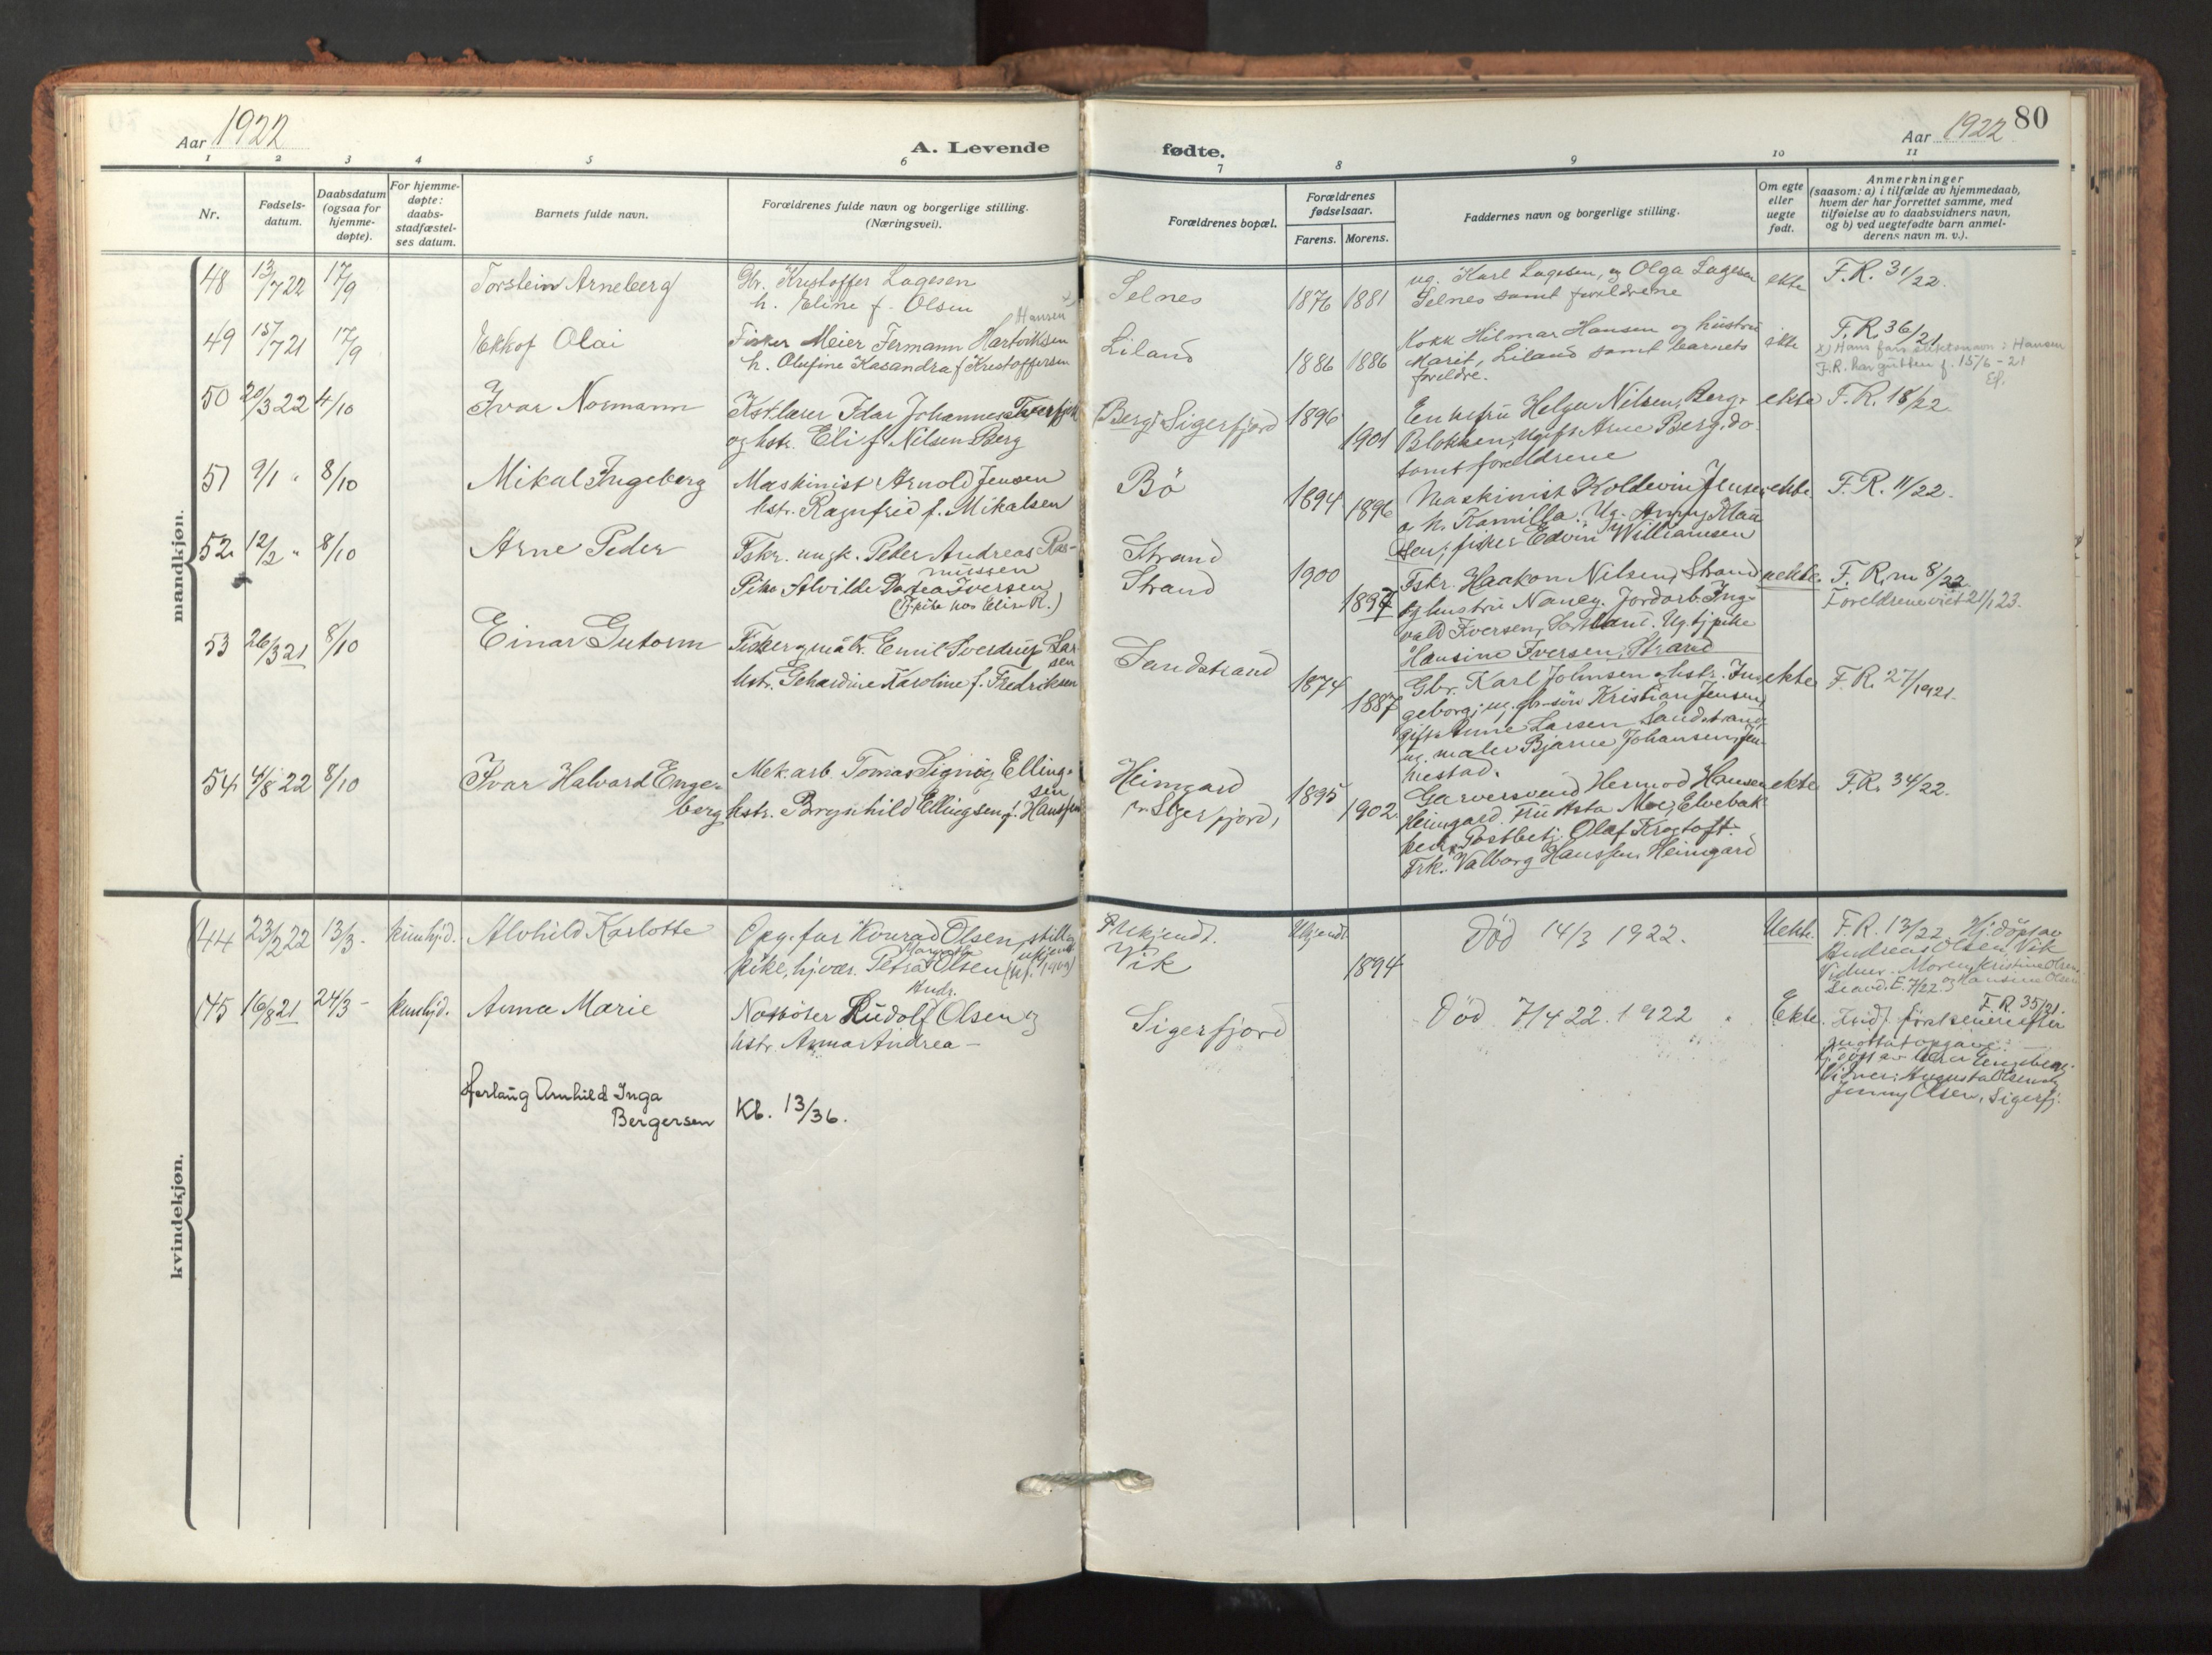 Aar 1922
A. Levende
fødte.
Aar 1922
80
1 2 3 4 5 6 7 8 9 10 11
Nr.
Fødsels-
datum.
Daabsdatum
(ogsaa for
hjemme-
døpte).
For hjemme-
døpte:
daabs-
stadfæstel-
ses datum.
Barnets fulde navn.
Forældrenes fulde navn og borgerlige stilling.
(Næringsvei).
Forældrenes bopæl.
Forældrenes
fødselsaar.
Farens. Morens.
Faddernes navn og borgerlige stilling.
Om egte
eller
uegte
født.
Anmerkninger
(saasom: a) i tilfælde av hjemmedaab,
hvem der har forrettet samme, med
tilføielse av to daabsvidners navn,
og b) ved uegtefødte barn anmel-
derens navn m. v.).
mandkjøn.
48 13/7 22 17/9 Torstein Arneberg
Gbr. Kristoffer Lagesen
h. Eline f. Olsen
Selnes 1876 1881
ug. Karl Lagesen, og Olga Lagesen
Selnes samt foreldrene
ekte F.R. 31/22.
49 15/7 21 17/9 Ekkof Olai
Hansen x)
Fisker Meier Fermann Hartviksen
h. Olufine Kasandra f. Kristoffersen
Liland 1886 1886
Kokk Hilmar Hansen og hustru
Marit, Liland samt barnets
foreldre.
ekte F.R. 36/21
x) Hans fars slektsnavn: Hansen
F.R. har gutten f. 15/6-21
50 20/3 22 4/10 Ivar Normann
Kstlærer Idar Johannes Tverfjell
og hstr. Eli f. Nilsen Berg
(Berg) Sigerfjord 1896 1901
Enkefru Helga Nilsen, Berg.
Blokken, Ugift Arne Berg, do.
samt foreldrene
ekte F.R. 18/22
51 9/1 " 8/10 Mikal Ingeberg
Maskinist Arnold Jensen
hstr. Ragnfrid f. Mikalsen
Bö 1894 1896
Maskinist Koldevin Jensen
o h. Kamilla. Ug. Anny Klau
sen; fisker Edvin Williamsen
ekte F.R. 11/22.
52 12/2 " 8/10 Arne Peder
Fskr. ungk. Peder Andreas Ras-
mussen
Pike Alvilde Dortea Iversen
(Tj.pike hos Elise R.)
Strand
Strand
1900 1897
Fskr. Haakon Nilsen, Strand
og hustru Nancy. Jordarb. Ing-
vald Iversen, Sortland. Ug. tj.pike
Hansine Iversen, Strand
uekte. F.R. nr 8/22
Foreldrene viet 21/1 23.
53 26/3 21 8/10 Einar Gutorm
Fisker gmatr. Emil Sverdrup Lar
sen
hstr. Gehardine Karoline f. Fredriksen
Sandstrand 1874 1887
Gbr. Karl Johnsen o hstr. In-
geborg; ug. gbr-sön Kristian Jensen,
gift Anne Larsen Sandstrand,
ug. maler Bjarne Johansen, Jen
nestad.
ekte F.R. 27/1921.
54 4/8 22 8/10 Ivar Halvard Enge-
berg
Mekarb. Tomas Signøy Elling-
sen
hstr. Brynhild Ellingsen f. Hanssen
Heimgard
pr. Sigerfjord, 1895 1902.
Garversvend Hermod Hansen
Heimgard. Fru Asta Moe, Elvebak
ken, Postbetj. Olaf Krogtoft.
Frk. Valborg Hanssen, Heimgard
ekte F.R. 34/22.
kvindekjøn.
44 23/2 22 13/3 - kunhjd. Alvhild Karlotte
Opg. far Konrad Olsen, still.
ukjent
pike, hjvær. Petra Olsen
Ukjendt.
Vik
Ukjendt 1894
Död 14/3 1922.
Uekte. F.R. 13/22. Hj.döpt av
Andreas Olsen, Vik
Vidner. Moren, Kristine Olsen
og Hansine Olsen
45 16/8 21 24/3 - kunhjd. Anna Marie
Andr.
Notböter Rudolf Olsen og
hstr. Anna Andrea -
Sigerfjord
Död 7/4 22. 1922 "
Ekte. F.R. 35/21.
Indf. först senere efter
mottat opgave.
Vidner: Augusta Olsen og
Jenny Olsen, Sigerfj.
Herlaug Arnhild Inga
Bergersen
Kb. 13/36.